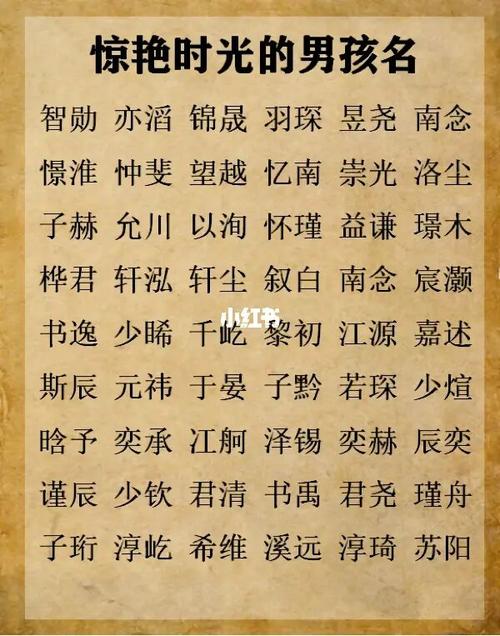 惊艳时光的男孩名
智勋 亦滔 锦晟 羽琛 昱尧 南念
憬淮 忡斐 望越 忆南 崇光 洛尘
子赫 允川 以洵 怀瑾 益谦 璟木
桦君 轩泓 轩尘 叙白 南念 宸灏
小红书
书逸 少晞 千屹 黎初 江源 嘉述
斯辰 元祎 于晏 子黔 若琛 少煊
晗予 奕承 江舸 泽锡 奕赫 辰奕
谨辰 少钦 君清 书禹 君尧 瑾舟
子珩 淳屹 希维 溪远 淳琦 苏阳